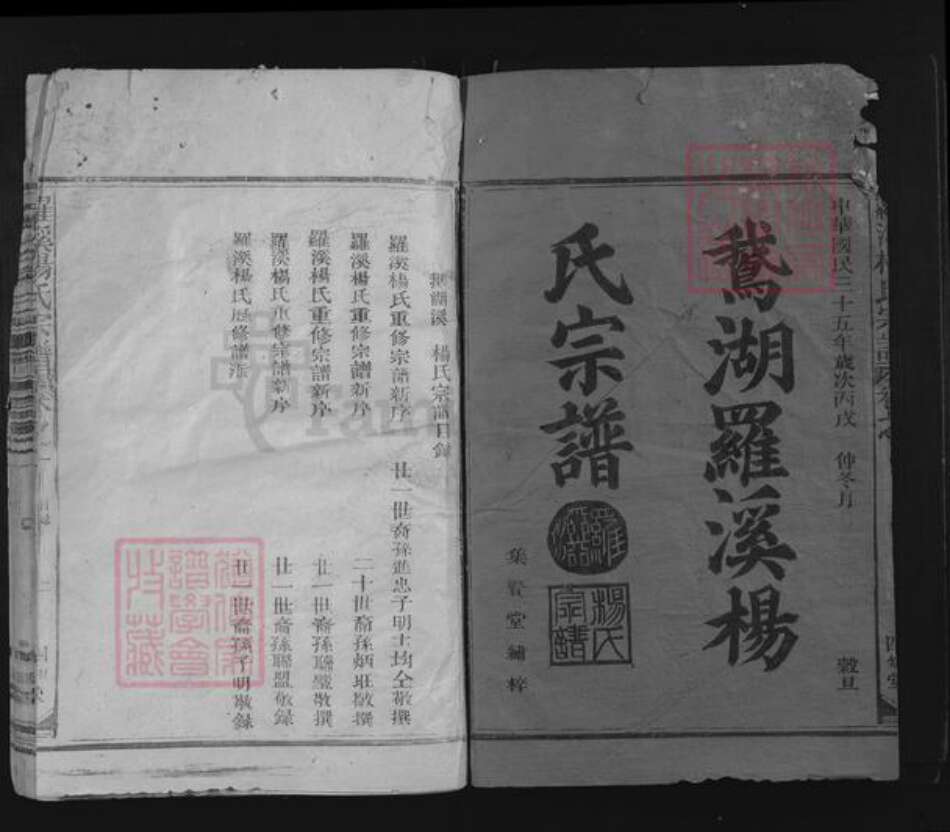 中華國民三十五年歲次丙戌 仲冬月 穀旦
鵞湖羅溪楊
氏宗譜
羅溪
楊氏宗譜
集賢堂補梓
鵞湖溪 楊氏宗譜目錄
羅溪楊氏重修宗譜新序 廿一世裔孫進忠子明士均仝敬撰
羅溪楊氏重修宗譜新序 二十世裔孫炳班敬撰
羅溪楊氏重修宗譜新序 廿一世裔孫聯璧敬撰
羅溪楊氏重修宗譜新序 廿一世裔孫聯盟敬錄
羅溪楊氏歷修譜派 廿一世裔孫子明敬錄
羅溪楊氏宗譜